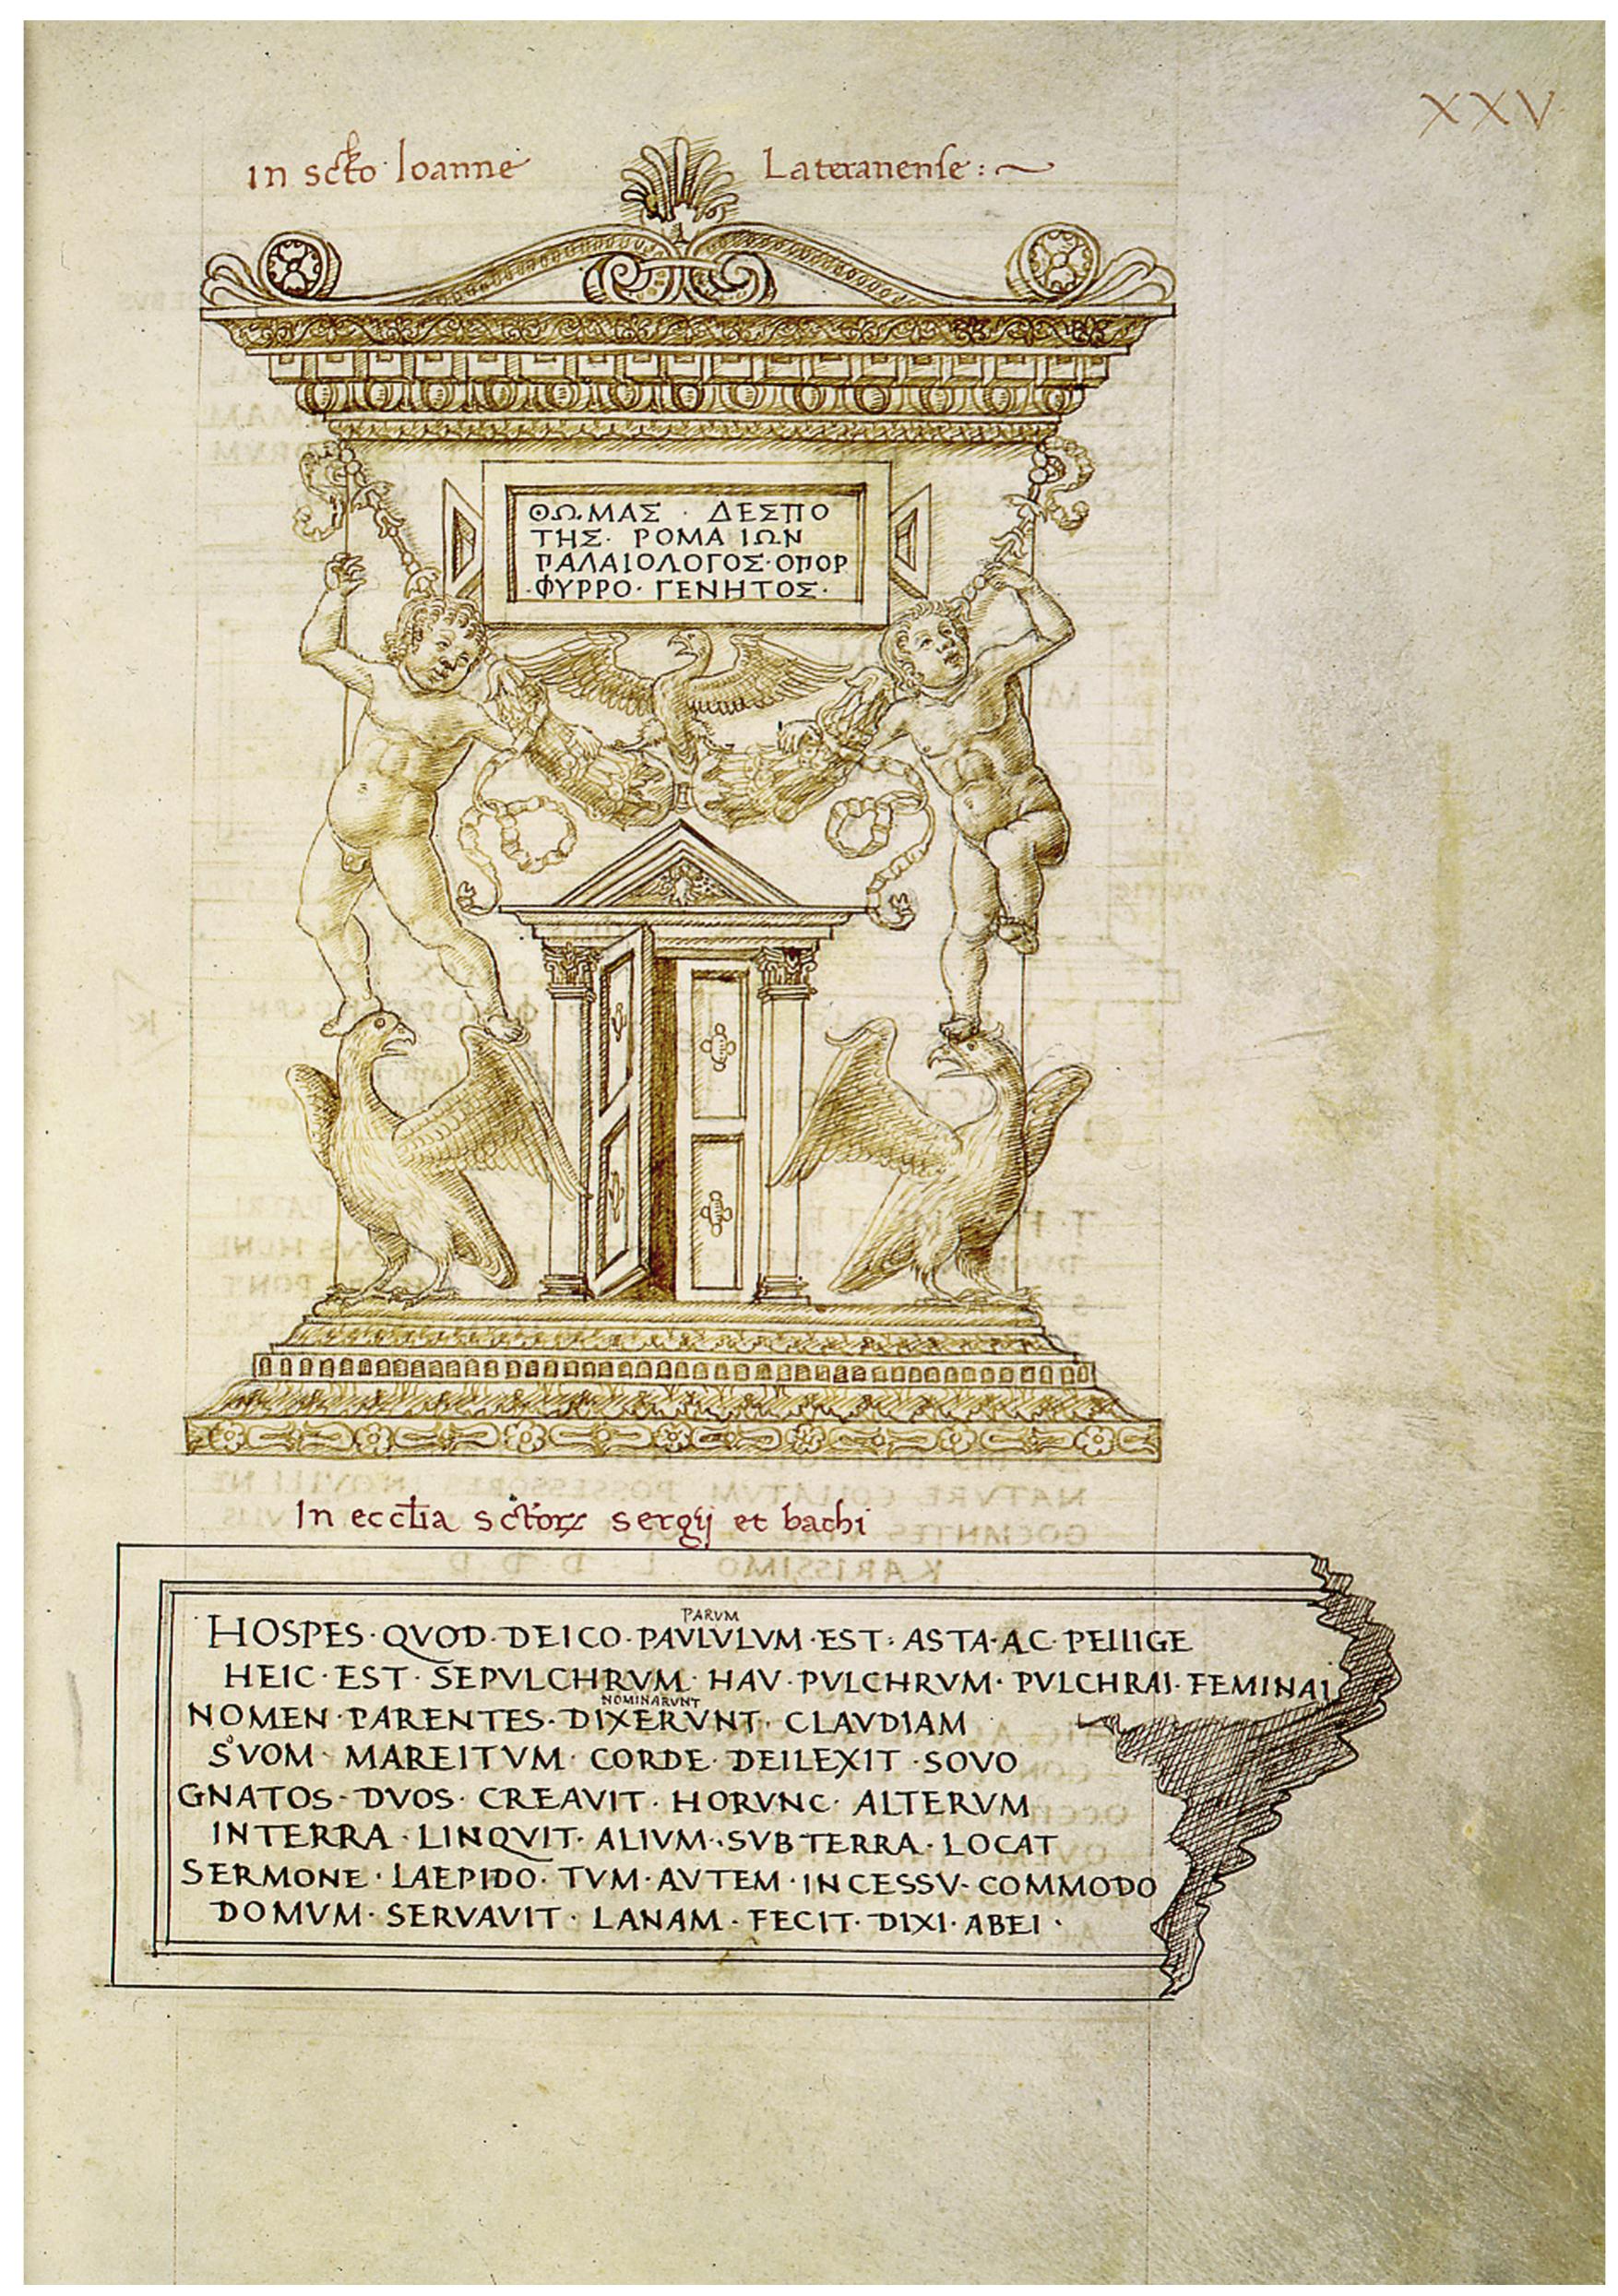 XXV
in scto Ioanne Lateranense :~
ΘΩΜΑΣ · ΔΕΣΠΟ
ΤΗΣ · ΡΟΜΑΙΩΝ
ΠΑΛΑΙΟΛΟΓΟΣ · ΟΠΟΡ
· ΦΥΡΡΟ · ΓΕΝΗΤΟΣ ·
In ecctia sctorꝝ sergij et bachi
PARVM
HOSPES · QVOD · DEICO · PAVLVLVM · EST : ASTA · AC · PELLIGE
HEIC · EST · SEPVLCHRVM · HAV · PVLCHRVM · PVLCHRAI · FEMINAI
NOMINARVNT
NOMEN · PARENTES · DIXERVNT · CLAVDIAM
SᵒVOM · MAREITVM · CORDE · DEILEXIT · SOVO
GNATOS · DVOS · CREAVIT · HORVNC · ALTERVM
INTERRA · LINQVIT · ALIVM · SVBTERRA · LOCAT
SERMONE · LAEPIDO · TVM · AVTEM · INCESSV · COMMODO
DOMVM · SERVAVIT · LANAM · FECIT · DIXI · ABEI ·